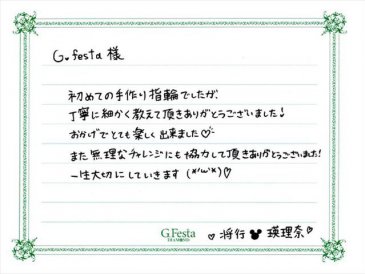 G.festa 様
初めての手作り指輪でしたが、
丁寧に細かく教えて頂きありがとうございました!
おかげでとても楽しく出来ました♡
また無理なチャレンジにも協力して頂きありがとうございました!
一生大切にしていきます (*'ω'*)♡
G.Festa
DIAMOND
♡ 将行 瑛理奈 ♡